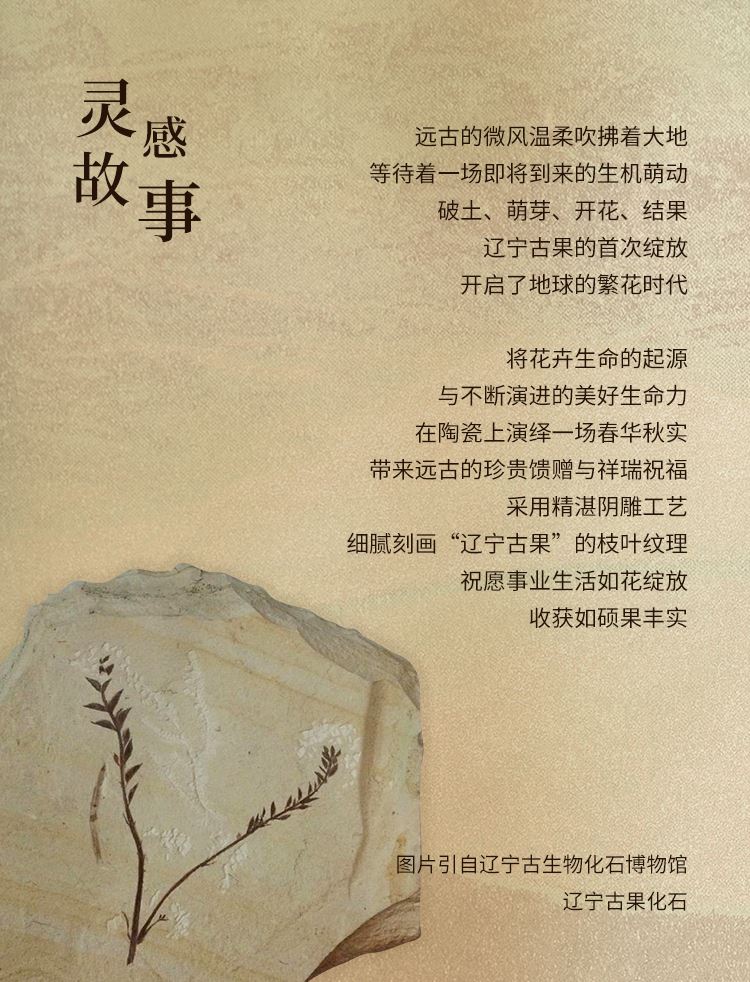 灵感
故事
远古的微风温柔吹拂着大地
等待着一场即将到来的生机萌动
破土、萌芽、开花、结果
辽宁古果的首次绽放
开启了地球的繁花时代
将花卉生命的起源
与不断演进的美好生命力
在陶瓷上演绎一场春华秋实
带来远古的珍贵馈赠与祥瑞祝福
采用精湛阴雕工艺
细腻刻画“辽宁古果”的枝叶纹理
祝愿事业生活如花绽放
收获如硕果丰实
图片引自辽宁古生物化石博物馆
辽宁古果化石